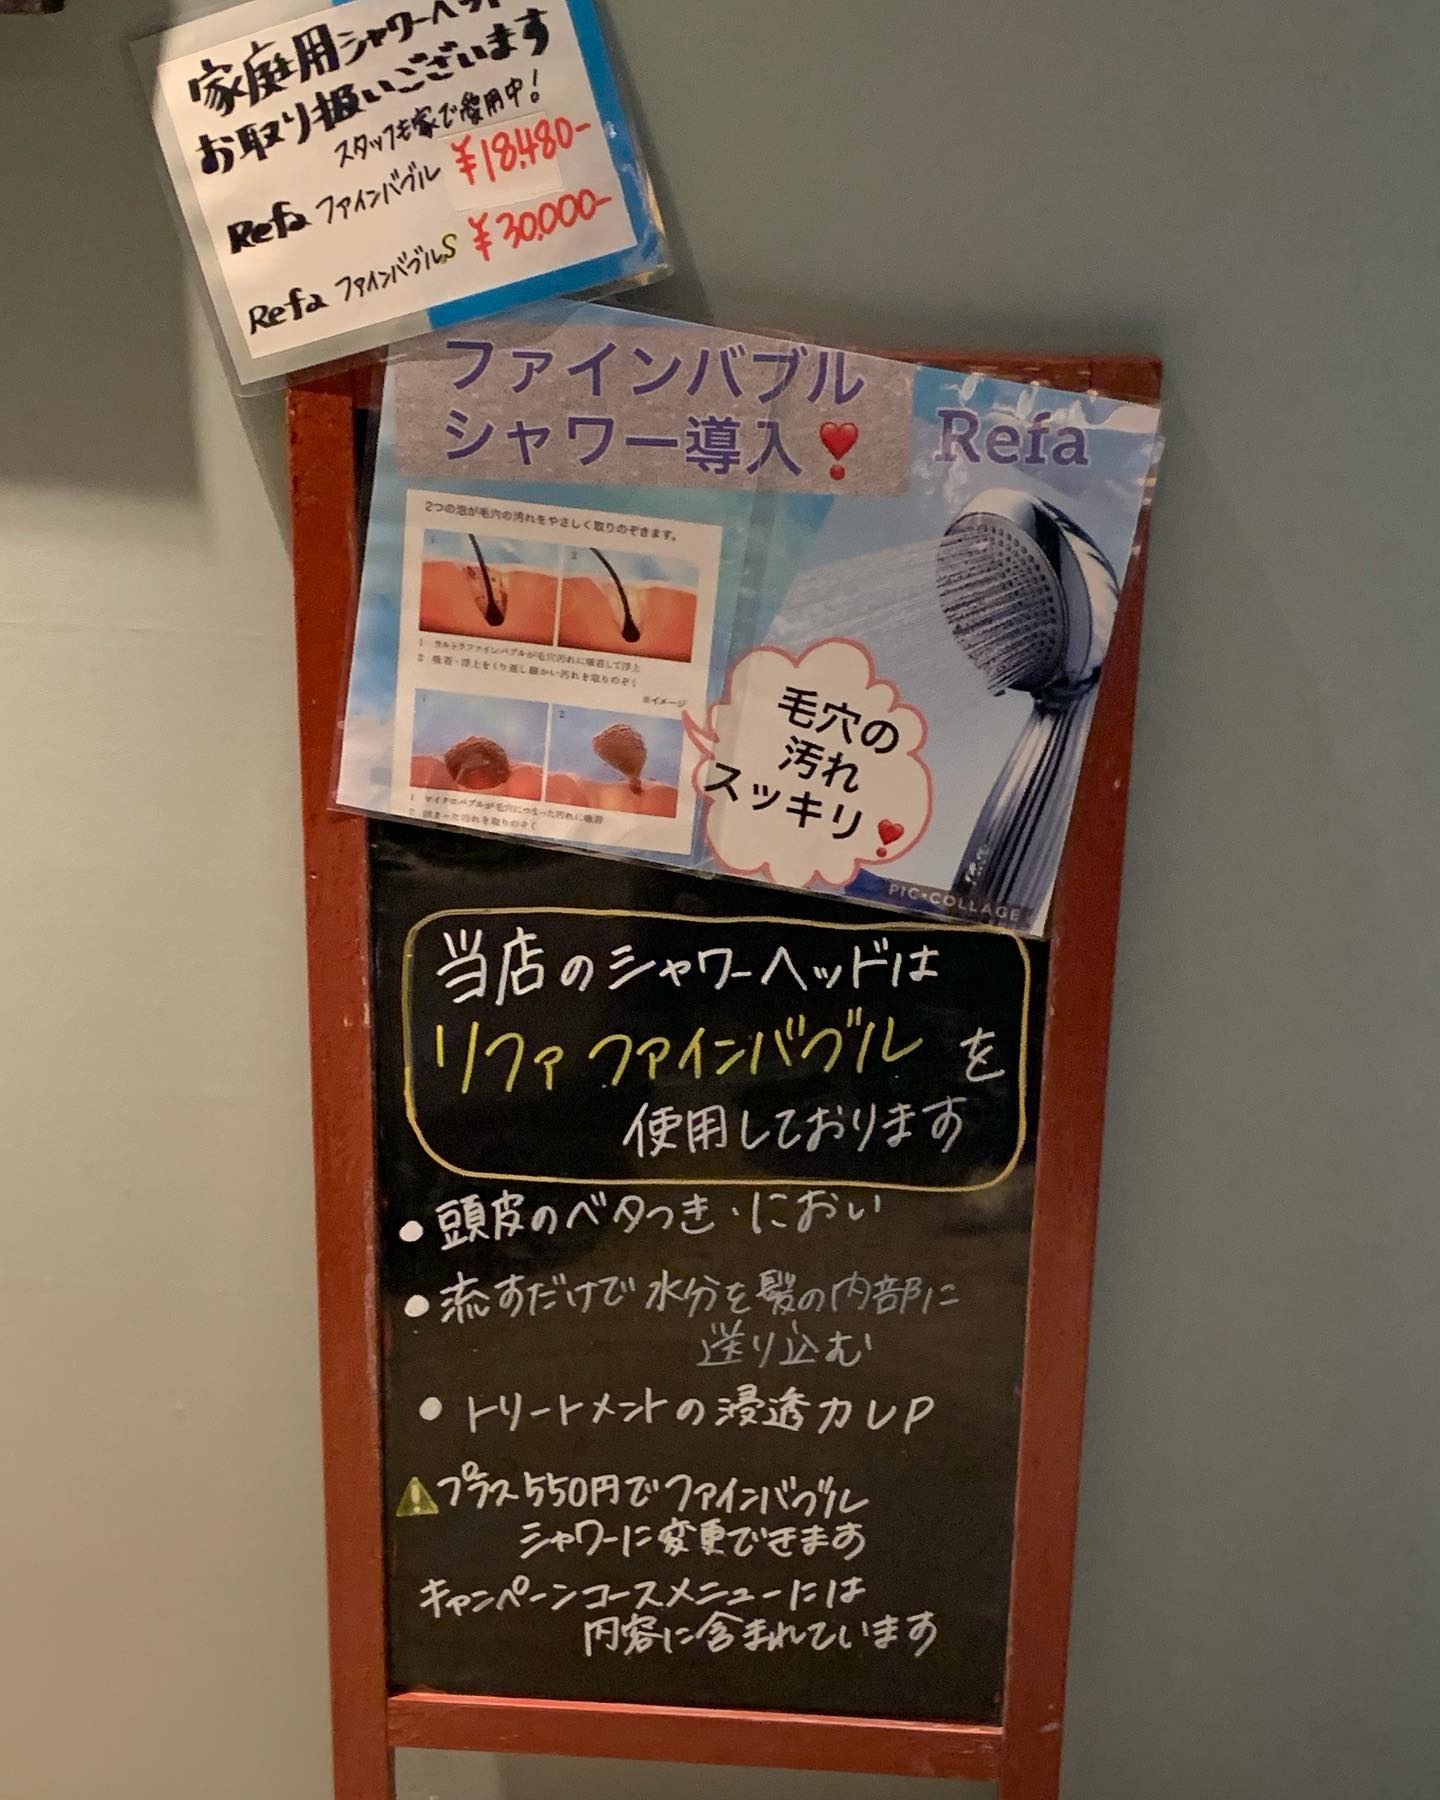 家庭用シャワーヘッド
お取り扱いございます
スタッフも家で愛用中!
Refa ファインバブル ¥18,480-
Refa ファインバブルS ¥30,000-
ファインバブル
シャワー導入❣
Refa
2つの泡が毛穴の汚れをやさしく取りのぞきます。
1 2
1 ウルトラファインバブルが毛穴汚れに吸着して浮上
2 吸着・浮上をくり返し細かい汚れを取りのぞく
※イメージ
1 2
1 マイクロバブルが毛穴につまった汚れに吸着
2 固まった汚れを取りのぞく
毛穴の
汚れ
スッキリ❣
PIC•COLLAGE
当店のシャワーヘッドは
リファ ファインバブル を
使用しております
● 頭皮のベタつき・におい
● 流すだけで水分を髪の内部に
送り込む
● トリートメントの浸透力UP
⚠プラス550円でファインバブル
シャワーに変更できます
キャンペーンコースメニューには
内容に含まれています